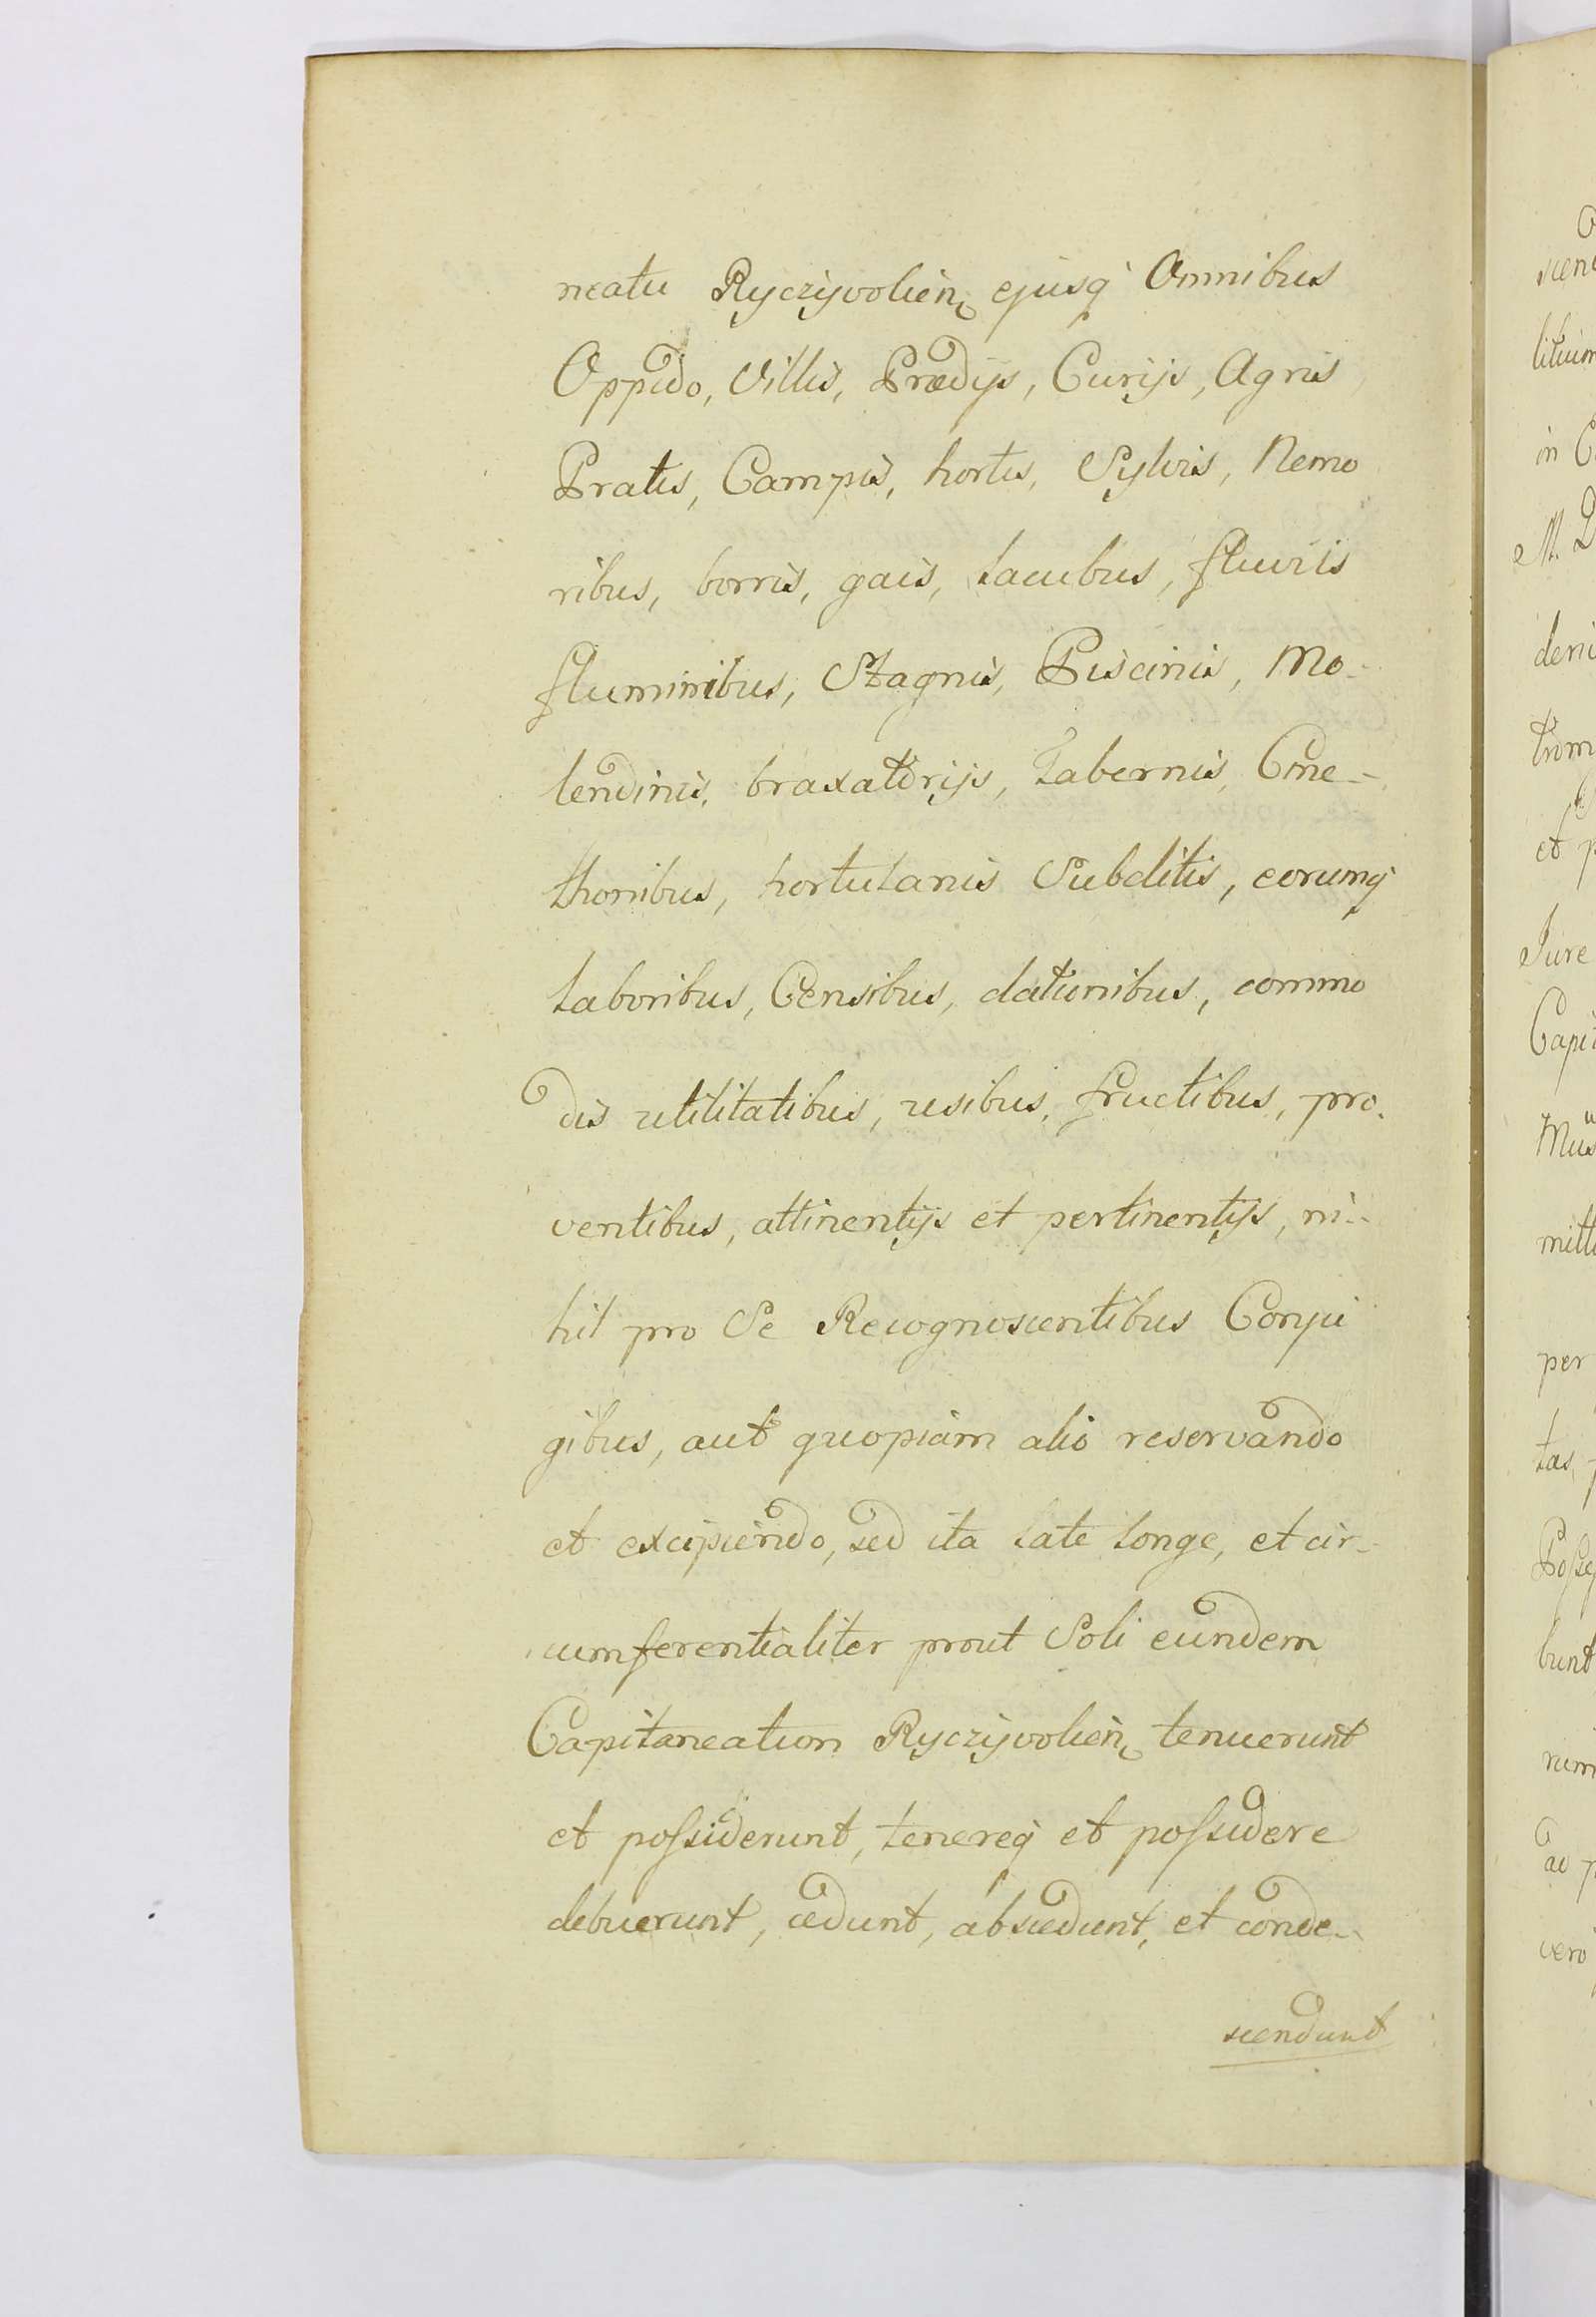 neatu Ryczyvolien ejusq Omnibus
Oppido, Villis, Prædijs, Curijs, Agris
Pratis, Campis, hortis, Sylvis, Nemo
ribus, borris, gais, Lacubus, fluviis
fluminibus, Stagnis, Piscinis, Mo-
lendinis, braxatorijs, Tabernis, Cme-
thonibus, hortulanis Subditis, eorumq
Laboribus, Censibus, dationibus, commo
dis utilitatibus, usibus, fructibus, pro-
ventibus, attinentijs et pertinentijs, ni-
hil pro Se Recognoscentibus Conju
gibus, aut quopiam alio reservando
et excipiendo, sed ita late longe, et cir-
cumferentialiter prout Soli eundem
Capitaneatum Ryczyvolien tenuerunt
et poſsiderunt, tenereq et poſsidere
debuerunt, cedunt, abscedunt, et conde-
scendunt
in C
M. D
deni
et p
Jure
Capi
per
tas,
bunt
ac p
vero